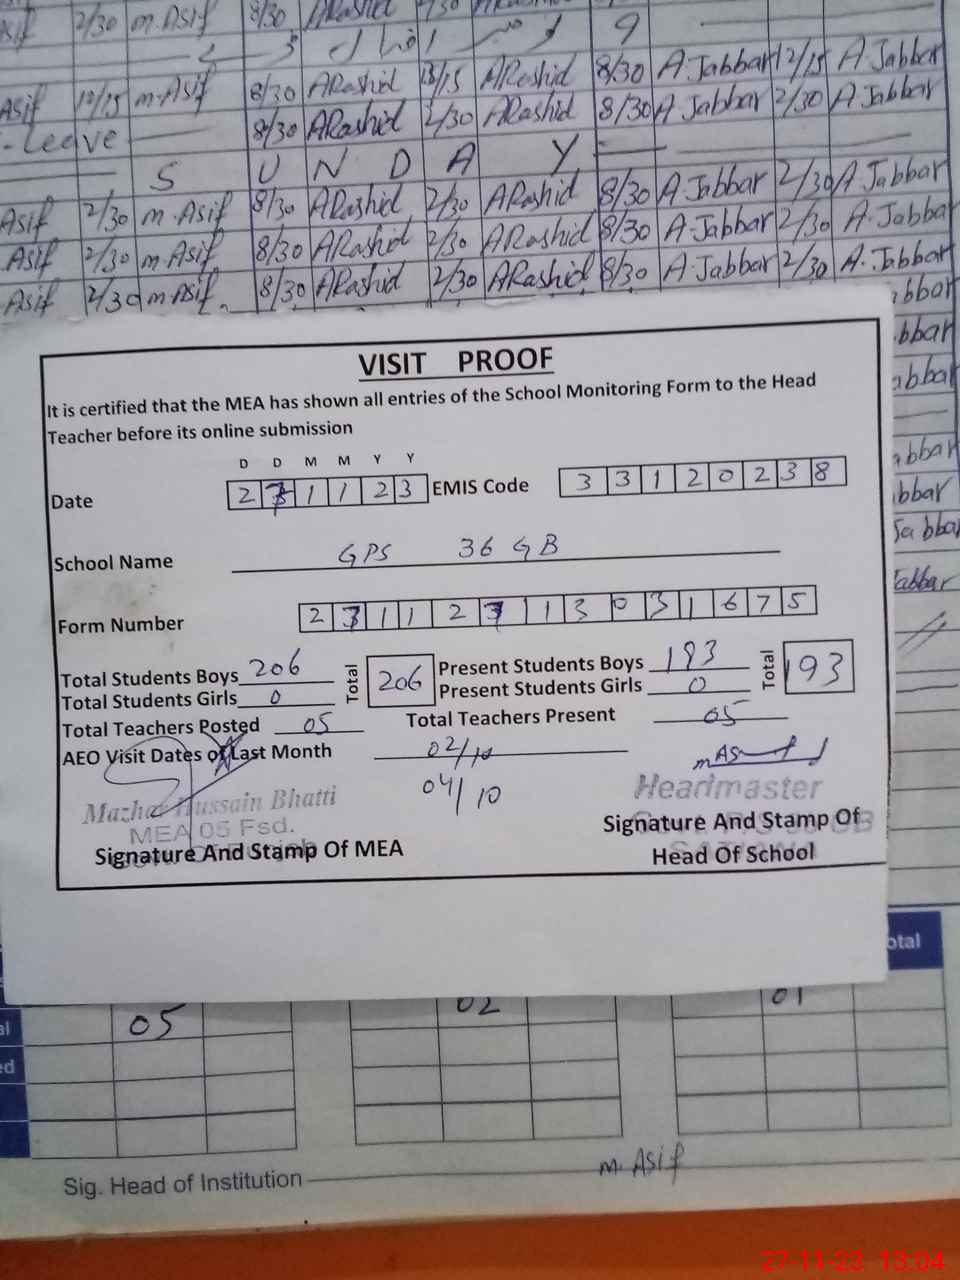 Asif 2/30 m.Asif 8/30 ARashid 2/30
Asif 12/15 m.Asif 8/30 ARashid 12/15 ARashid 8/30 A.Jabbar 12/15 A.Jabbar
Leave 8/30 ARashid 2/30 ARashid 8/30 A.Jabbar 2/30 A.Jabbar
S U N D A Y
Asif 2/30 m.Asif 8/30 ARashid 2/30 ARashid 8/30 A.Jabbar 2/30 A.Jabbar
Asif 2/30 m.Asif 8/30 ARashid 2/30 ARashid 8/30 A.Jabbar 2/30 A.Jabbar
Asif 2/30 m.Asif 8/30 ARashid 2/30 ARashid 8/30 A.Jabbar 2/30 A.Jabbar
VISIT PROOF
It is certified that the MEA has shown all entries of the School Monitoring Form to the Head
Teacher before its online submission
D D M M Y Y
Date 2 7 1 1 2 3 EMIS Code 3 3 1 2 0 2 3 8
School Name GPS 36 GB
Form Number 2 7 1 1 2 3 1 3 0 3 1 6 7 5
Total Students Boys 206 Total 206 Present Students Boys 193 Total 193
Total Students Girls 0 Present Students Girls 0
Total Teachers Posted 05 Total Teachers Present 05
AEO Visit Dates of Last Month 02/10
04/10
m Asif
Mazhar Hussain Bhatti Headmaster
MEA 05 Fsd.
Signature And Stamp Of MEA Signature And Stamp Of
Head Of School
otal
05 02 01
Sig. Head of Institution m.Asif
27-11-23 13:04